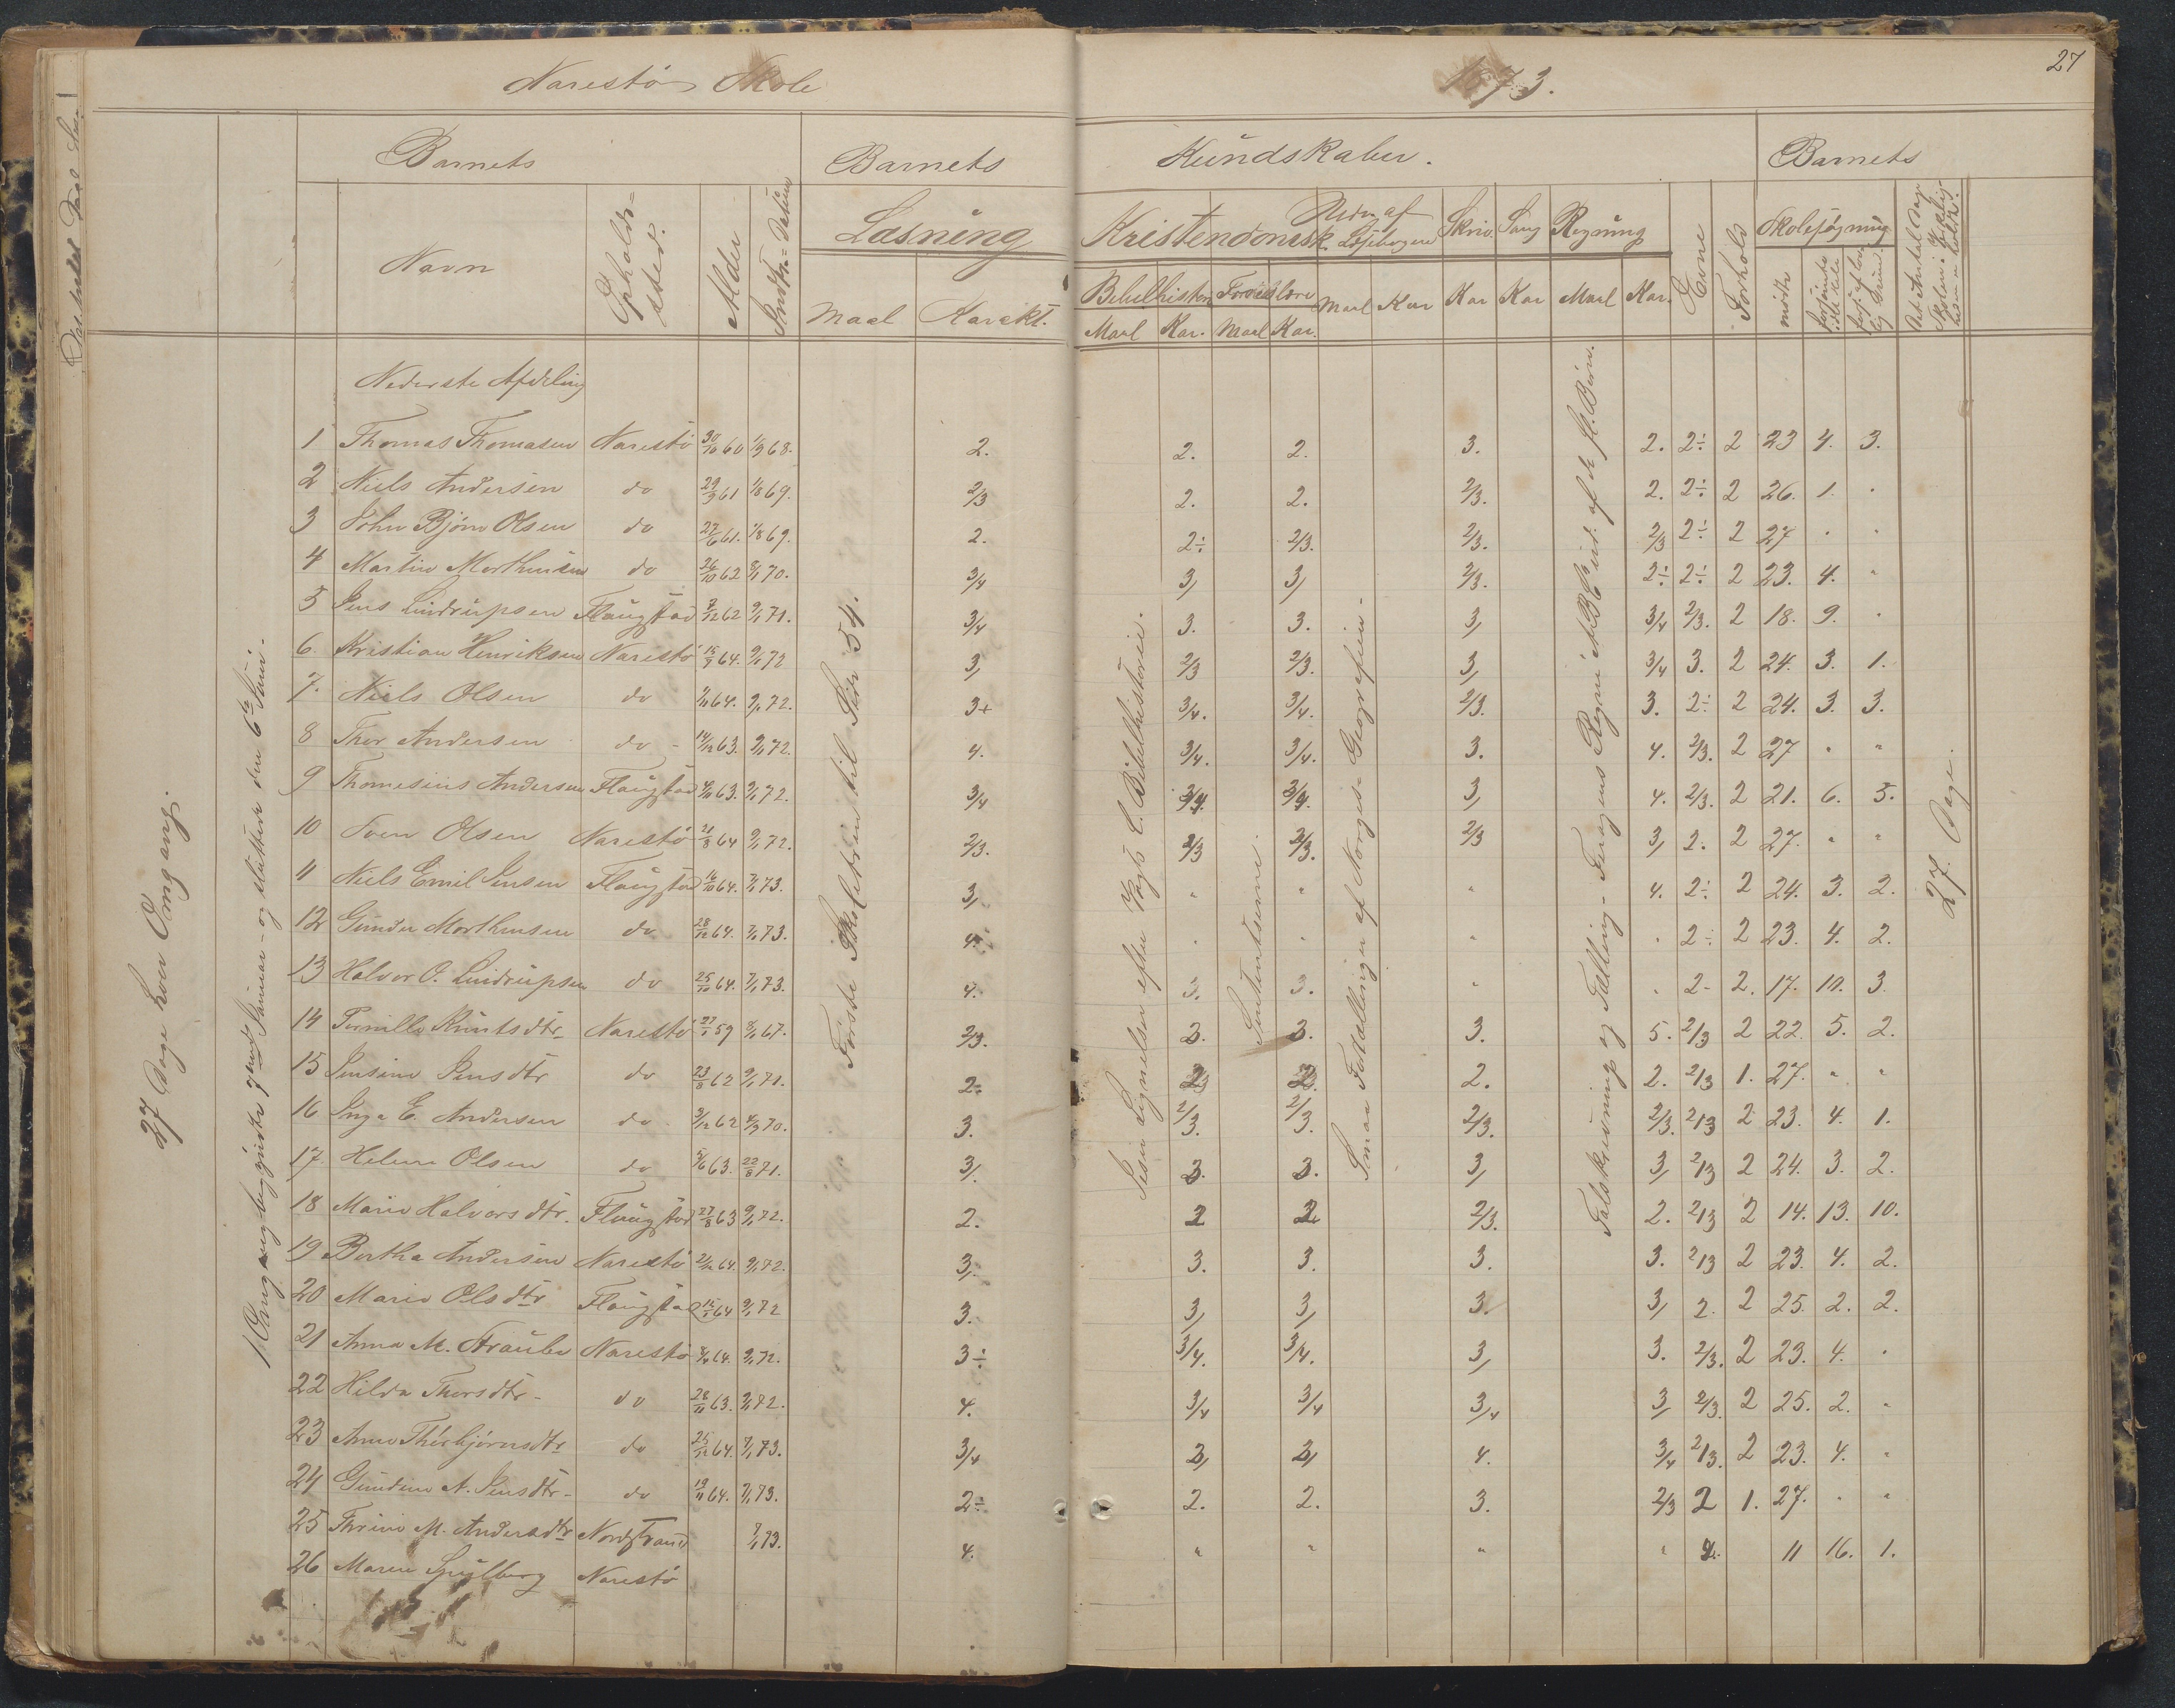 Narestø Skole
1873.
27
Barnets
Barnets
Kundskaber.
Barnets
Navn
Opholds-
sted.
Alder
Læsning
Maal
Karakt.
Kristendomsk.
Udv. af Læsebogen
Skriv.
Sang
Regning
Evne
Forhold
Skolesøgning
Bibelhistorie
Troeslære
Maal
Kar
Kar
Kar
Maal
Kar.
Maal
Kar.
Maal
Kar.
mødte
27 Dage hver Omgang.
1 Omgang begyndte 7nde Januar - og sluttede den 6te Juni.
Første Skoletrin til Side 54.
Sexten Lignelser efter Vogts l. Bibelhistorie.
Sententserne.
Smaa Fortællinger af Norges Geografien.
Talskrivning og Tælling -
27. Dage.
Nederste Afdeling
1 Thomas Thomasen Narestø 30/10 60 1/9 68. 2. 2. 2. 3. 2. 2÷ 2 23 4. 3.
2 Niels Andersen do 29/9 61 1/8 69. 2/3 2. 2. 2/3. 2. 2÷ 2 26. 1. "
3 John Bjørn Olsen do 27/6 61. 1/8 69. 2. 2÷ 2/3. 2/3. 2/3 2÷ 2 27 " "
4 Martin Morthensen do 26/10 62 8/1 70. 3/4 3, 3, 2/3. 2÷ 2÷ 2 23. 4. "
5 Jens Lindrupsen Flaugstad 9/12 62 9/1 71. 3/4 3. 3. 3, 3/4 2/3. 2 18. 9. "
6. Kristian Henriksen Narestø 15/9 64. 9/1 72 3, 2/3 2/3. 3, 3/4 3. 2 24. 3. 1.
7. Niels Olsen do 64. 9/1 72. 3+ 3/4. 3/4. 2/3. 3. 2÷ 2 24. 3. 3.
8 Thor Andersen do 14/12 63. 9/1 72. 4. 3/4. 3/4. 3. 4. 2/3. 2 27 " "
9 Thomesius Andersen Flaugstad 63. 9/1 72. 3/4 3/4. 3/4. 3, 4. 2/3. 2 21. 6. 5.
10 Sven Olsen Narestø 21/8 64 9/1 72. 2/3. 2/3 2/3. 2/3 3, 2. 2 27. " "
11 Niels Emil Jensen Flaugstad 16/10 64. 7/1 73. 3, " " " 4. 2÷ 2 24. 3. 2.
12 Gunder Morthensen do 28/12 64. 7/1 73. 4. " " " " 2÷ 2 23. 4. 2.
13 Halvor O. Lindrupsen do 25/10 64. 7/1 73. 4. 3. 3. " " 2- 2. 17. 10. 3.
14 Pernille Knutsdtr Narestø 27/1 59 8/1 67. 2/3. 3. 3. 3. 5. 2/3 2 22. 5. 2.
15 Jensine Jensdtr do 23/8 62 9/1 71. 2÷ 2. 2. 2/3 1. 27. " "
16 Inga E. Andersen do 3/12 62 4/3 70. 3. 2/3. 2/3. 2/3. 2/3. 2/3 2 23. 4. 1.
17. Helene Olsen do 5/6 63. 22/8 71. 3, 3. 3. 3, 3, 2/3 2 24. 3. 2.
18 Marie Halvorsdtr. Flaugstad 27/8 63 9/1 72. 2. 2 2 2/3. 2. 2/3 2 14. 13. 10.
19 Bertha Andersen Narestø 64. 9/1 72. 3, 3. 3. 3. 3. 2/3 2 23. 4. 2.
20 Marie Olsdtr Flaugstad 64 9/1 72 3. 3, 3, 3. 3, 2. 2 25. 2. 2.
21 Anna M. Straube Narestø 64. 9/1 72. 3÷ 3/4. 3/4. 3, 3. 2/3. 2 23. 4. "
22 Hilda Thorsdtr- do 28/11 63. 9/1 72. 4. 3/4 3/4 3/4 3, 2/3. 2 25. 2. "
23 Anne Thorbjørnsdtr do 25/12 64. 7/1 73. 3/4 3, 3, 4. 3/4 2/3. 2 23. 4. "
24 Gundine A. Jensdtr- do 19/11 64. 7/1 73. 2÷ 2. 2. 3. 2/3 2 1. 27. " "
25 Thrine M. Andersdtr Nordstrand 7/1 73. 4. " " " " 2. 11 16. 1.
26 Maren Narestø